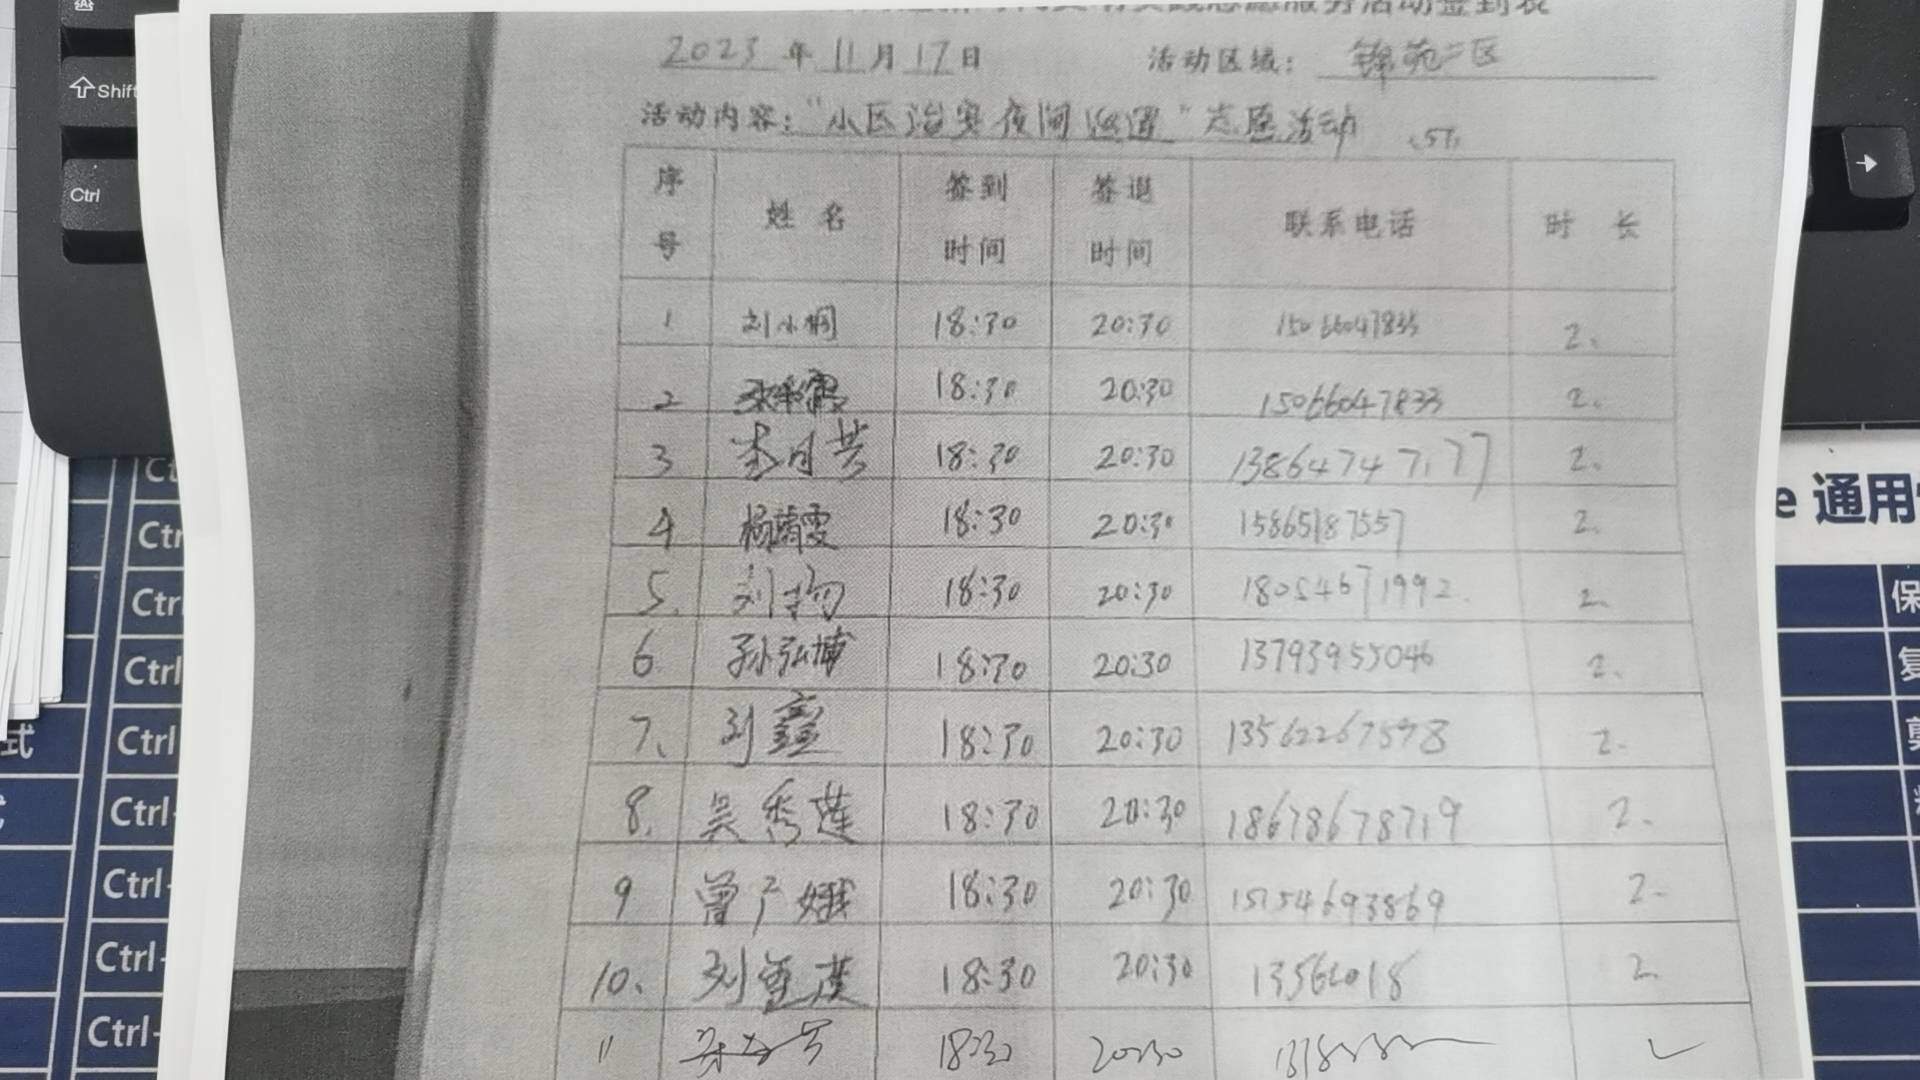 志愿服务活动签到表
2023年11月17日 活动区域：锦苑二区
活动内容："小区治安夜间巡逻"志愿活动
序号 姓名 签到时间 签退时间 联系电话 时长
1 刘小桐 18:30 20:30 2.
2 18:30 20:30 15066047833 2.
3 李月芳 18:30 20:30 13864747177 2.
4 杨霄雯 18:30 20:30 15865187557 2.
5. 刘均 18:30 20:30 18054671992. 2.
6. 孙弘博 18:30 20:30 13793955046 2.
7、 刘鑫 18:30 20:30 13562267598 2.
8. 吴秀莲 18:30 20:30 18678678719 2.
9 曾广娥 18:30 20:30 15154693869 2.
10、 刘 18:30 20:30 2.
11 18:30 20:30
Shift
Ctrl
Ctrl
Ctrl
Ctrl
Ctrl
Ctrl
Ctrl
Ctrl
Ctrl
式
e 通用
保
复
剪